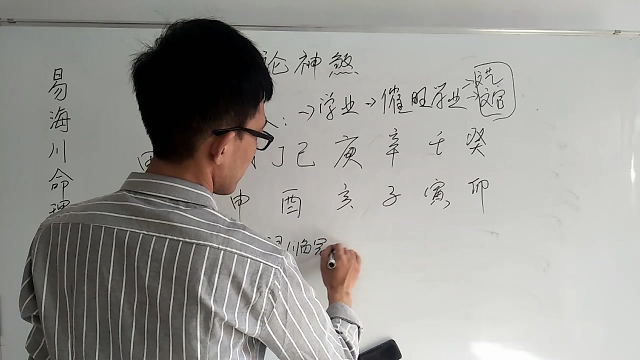 易海川命理
论神煞
：→学业→催旺学业→文艺
文官
丁己庚辛壬癸
申酉亥子寅卯
临官